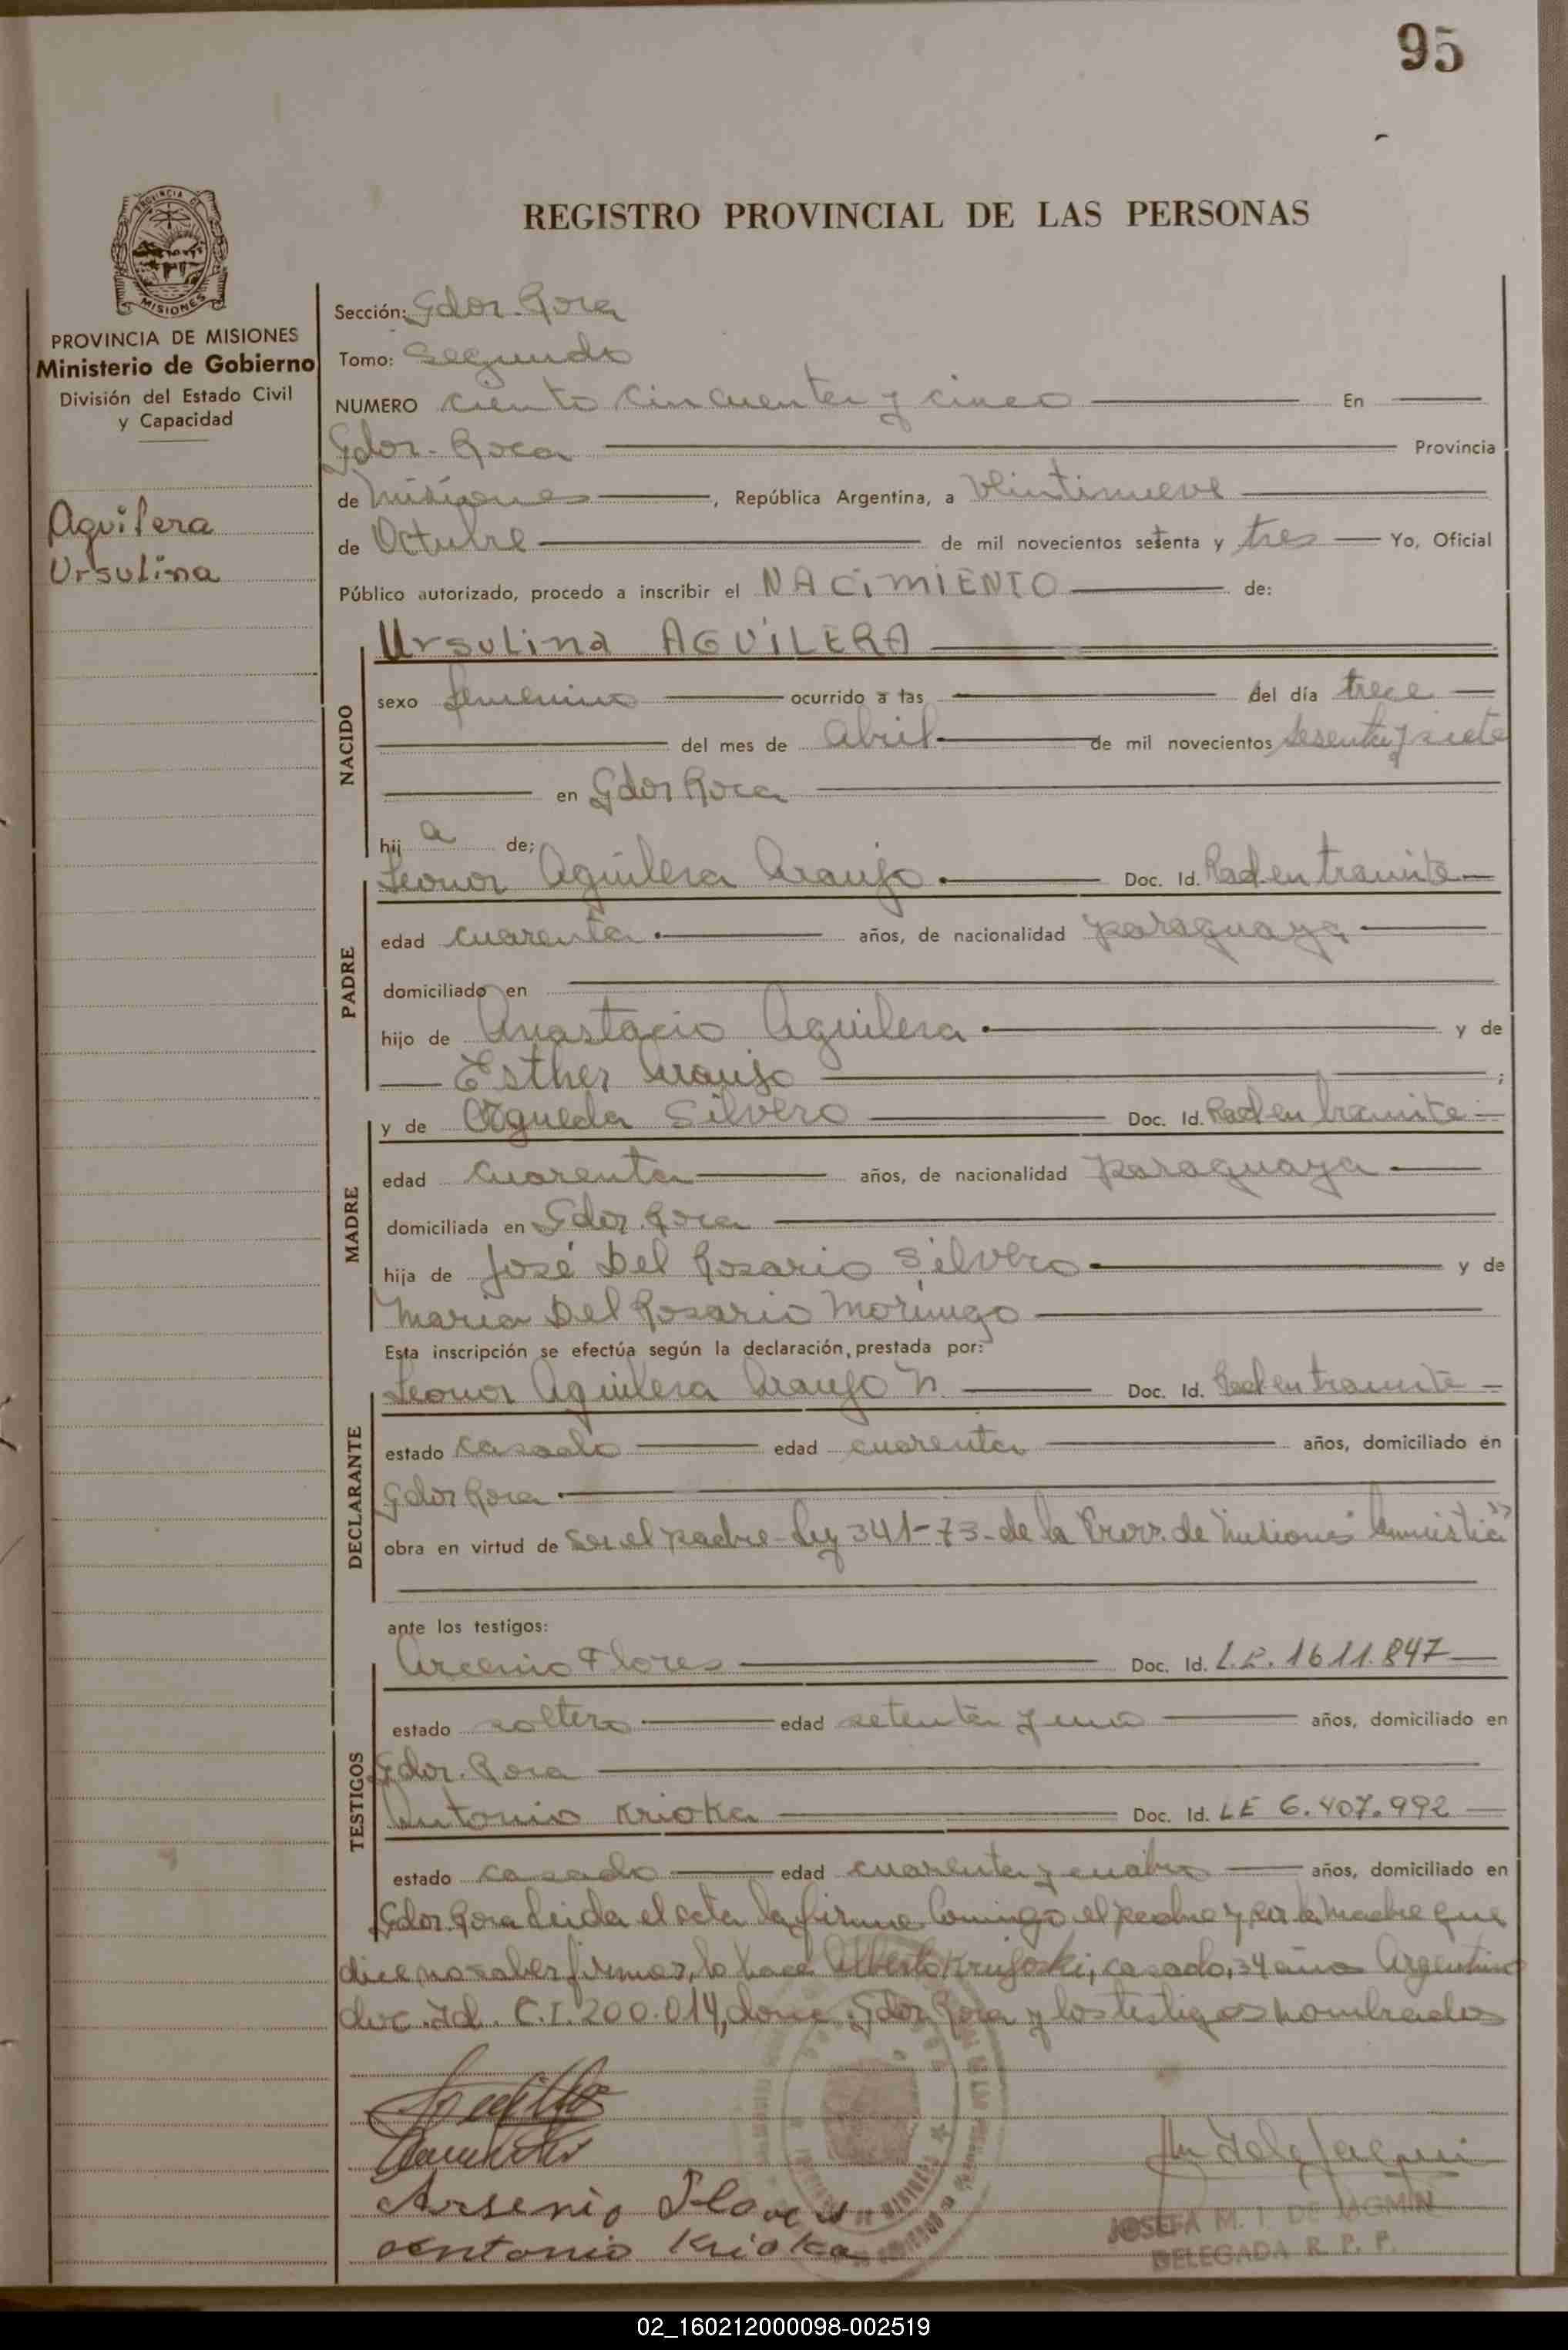 95
REGISTRO PROVINCIAL DE LAS PERSONAS
PROVINCIA DE
MISIONES
PROVINCIA DE MISIONES
Ministerio de Gobierno
División del Estado Civil
y Capacidad
Aguilera
Ursulina
Sección: Gdor. Roca
Tomo: Segundo
NUMERO ciento cincuenta y cinco En
Gdor. Roca Provincia
de Misiones, República Argentina, a Veintinueve
de Octubre de mil novecientos setenta y tres Yo, Oficial
Público autorizado, procedo a inscribir el NACIMIENTO de:
NACIDO
Ursulina AGUILERA
sexo femenino ocurrido a las del día trece
del mes de Abril de mil novecientos sesenta y siete
en Gdor Roca
hij a de;
PADRE
Leonor Aguilera Araujo Doc. Id. Rad en tramite
edad cuarenta años, de nacionalidad paraguaya
domiciliado en
hijo de Anastacio Aguilera y de
Esther Araujo ;
MADRE
y de Agueda Silvero Doc. Id. Rad en tramite
edad cuarenta años, de nacionalidad paraguaya
domiciliada en Gdor. Roca
hija de José Del Rosario Silvero y de
Maria Del Rosario Moringo
Esta inscripción se efectúa según la declaración, prestada por:
DECLARANTE
Leonor Aguilera Araujo Doc. Id. Rad en tramite
estado casado edad cuarenta años, domiciliado en
Gdor Roca
obra en virtud de Ser el padre - Ley 341-73- de la Prov. de Misiones "Amnistia"
ante los testigos:
TESTIGOS
Arcenio Flores Doc. Id. L.E. 1611.847
estado soltero edad setenta y uno años, domiciliado en
Gdor. Roca
Antonio Krioka Doc. Id. LE 6.407.992
estado casado edad cuarenta y cuatro años, domiciliado en
Gdor. Roca Leida el acta la firma conmigo el padre y por la madre que
dice no saber firmar, lo hace Alberto, casado, 34 años Argentino
doc. Id. C.I. 200.014, domic. Gdor Roca y los testigos nombrados
Arsenio Flores
Antonio Krioka
JOSEFA M. I. DE JAGMIN
DELEGADA R. P. P.
02_160212000098-002519